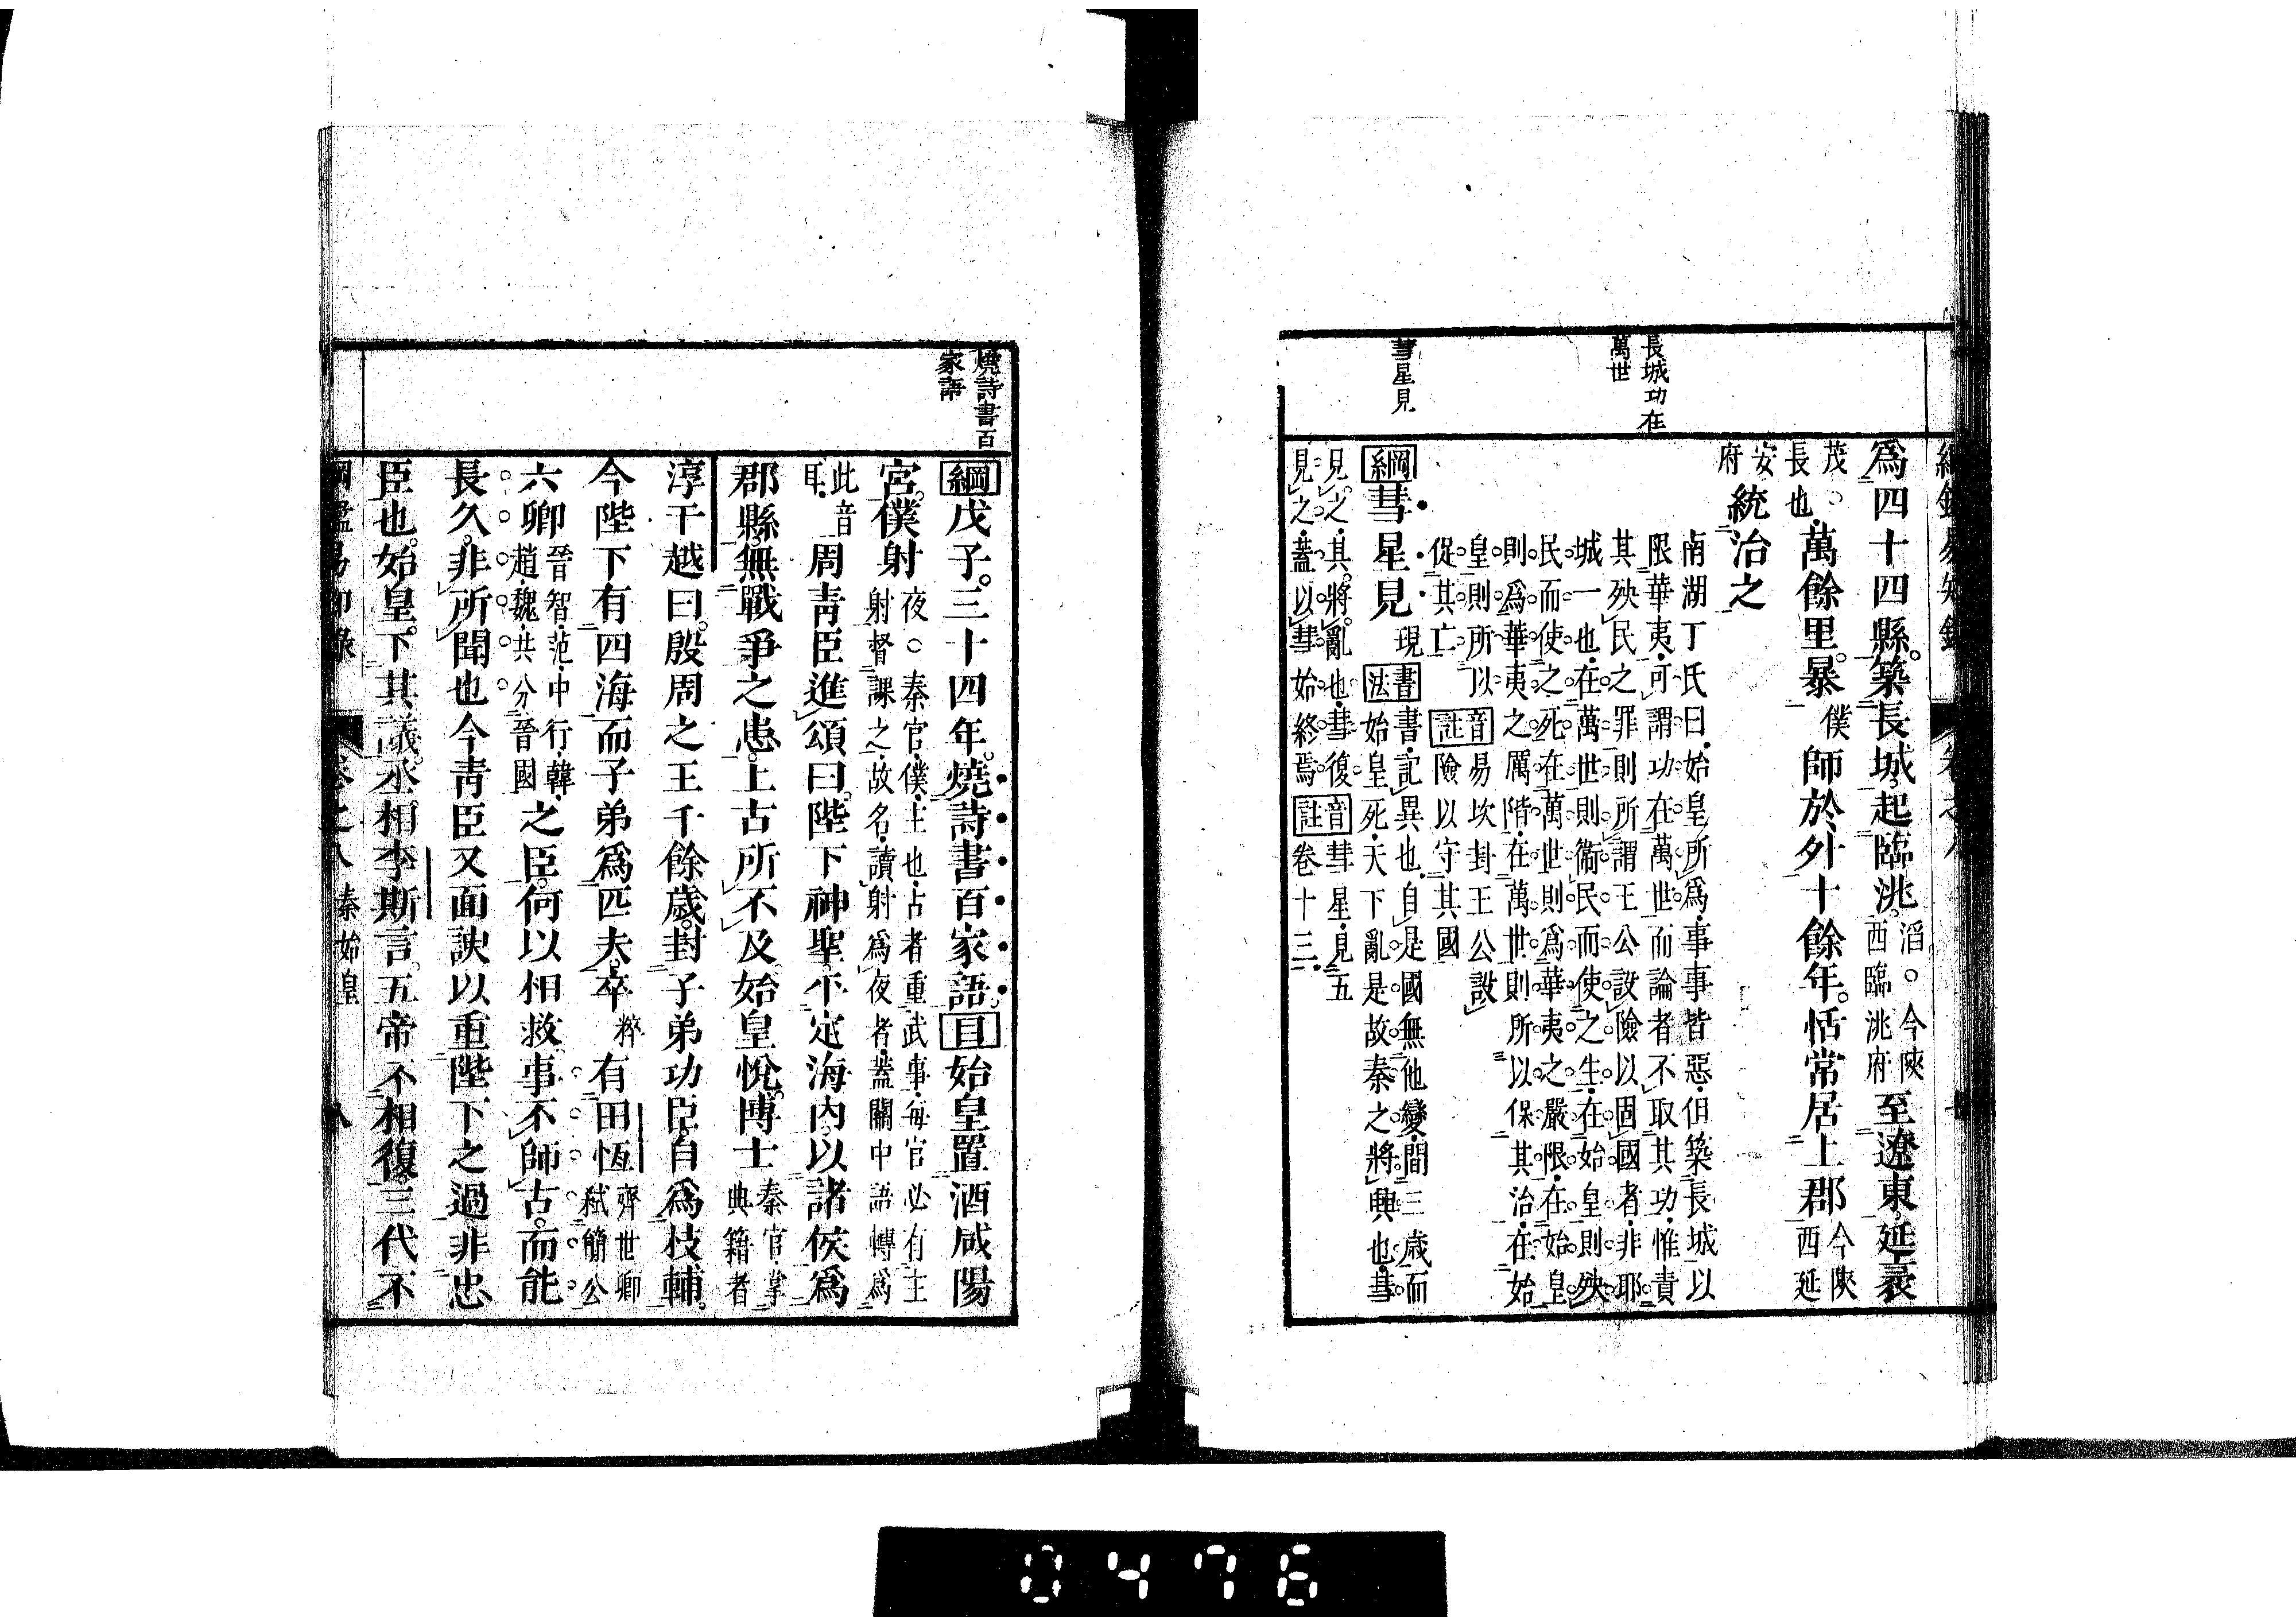 綱鑑易知錄 卷之八 七
長城功在
萬世
彗星見
爲四十四縣。築長城。起臨洮。滔。○今陝西臨洮府至遼東。延袤
茂。○長也。萬餘里。暴僕師於外十餘年。恬常居上郡今陝西延
安府統治之
南湖丁氏曰。始皇所爲。事事皆惡。但築長城以
限華夷。可謂功在萬世。而論者不取其功。惟責
其殃民之罪。則所謂王公設險以固國者。非耶。
城一也。在萬世則衞民而使之生。在始皇則殃
民而使之死。在萬世則爲華夷之嚴限。在始皇
則爲華夷之厲階。在萬世則所以保其治。在始
皇則所以促其亡。音註易坎卦王公設險以守其國
綱彗星見現書法書。記異也。自是國無他變。間三歲而始皇死。天下亂。是故秦之將興也。彗
見之。其將亂也。彗復見之。蓋以彗始終焉。音註彗星見五卷十三
燒詩書百
家語
綱戊子。三十四年。燒詩書百家語。目始皇置酒咸陽
宮。僕射夜。○秦官。僕。主也。古者重武事。每官必有主射督課之。故名。讀射爲夜者。蓋關中語轉爲
此音耳。周靑臣進頌曰。陛下神聖。平定海內。以諸侯爲
郡縣。無戰爭之患。上古所不及。始皇悅。博士秦官。掌典籍者
淳于越曰。殷周之王千餘歲。封子弟功臣。自爲枝輔。
今陛下有四海。而子弟爲匹夫。卒粹有田恆齊世卿弒簡公
六卿晉智。范。中行。韓。趙。魏。共分晉國之臣。何以相救。事不師古。而能
長久。非所聞也。今靑臣又面諛以重陛下之過。非忠
臣也。始皇。下其議。丞相李斯言。五帝不相復。三代不
綱鑑易知錄 卷之八 秦始皇 八
0476